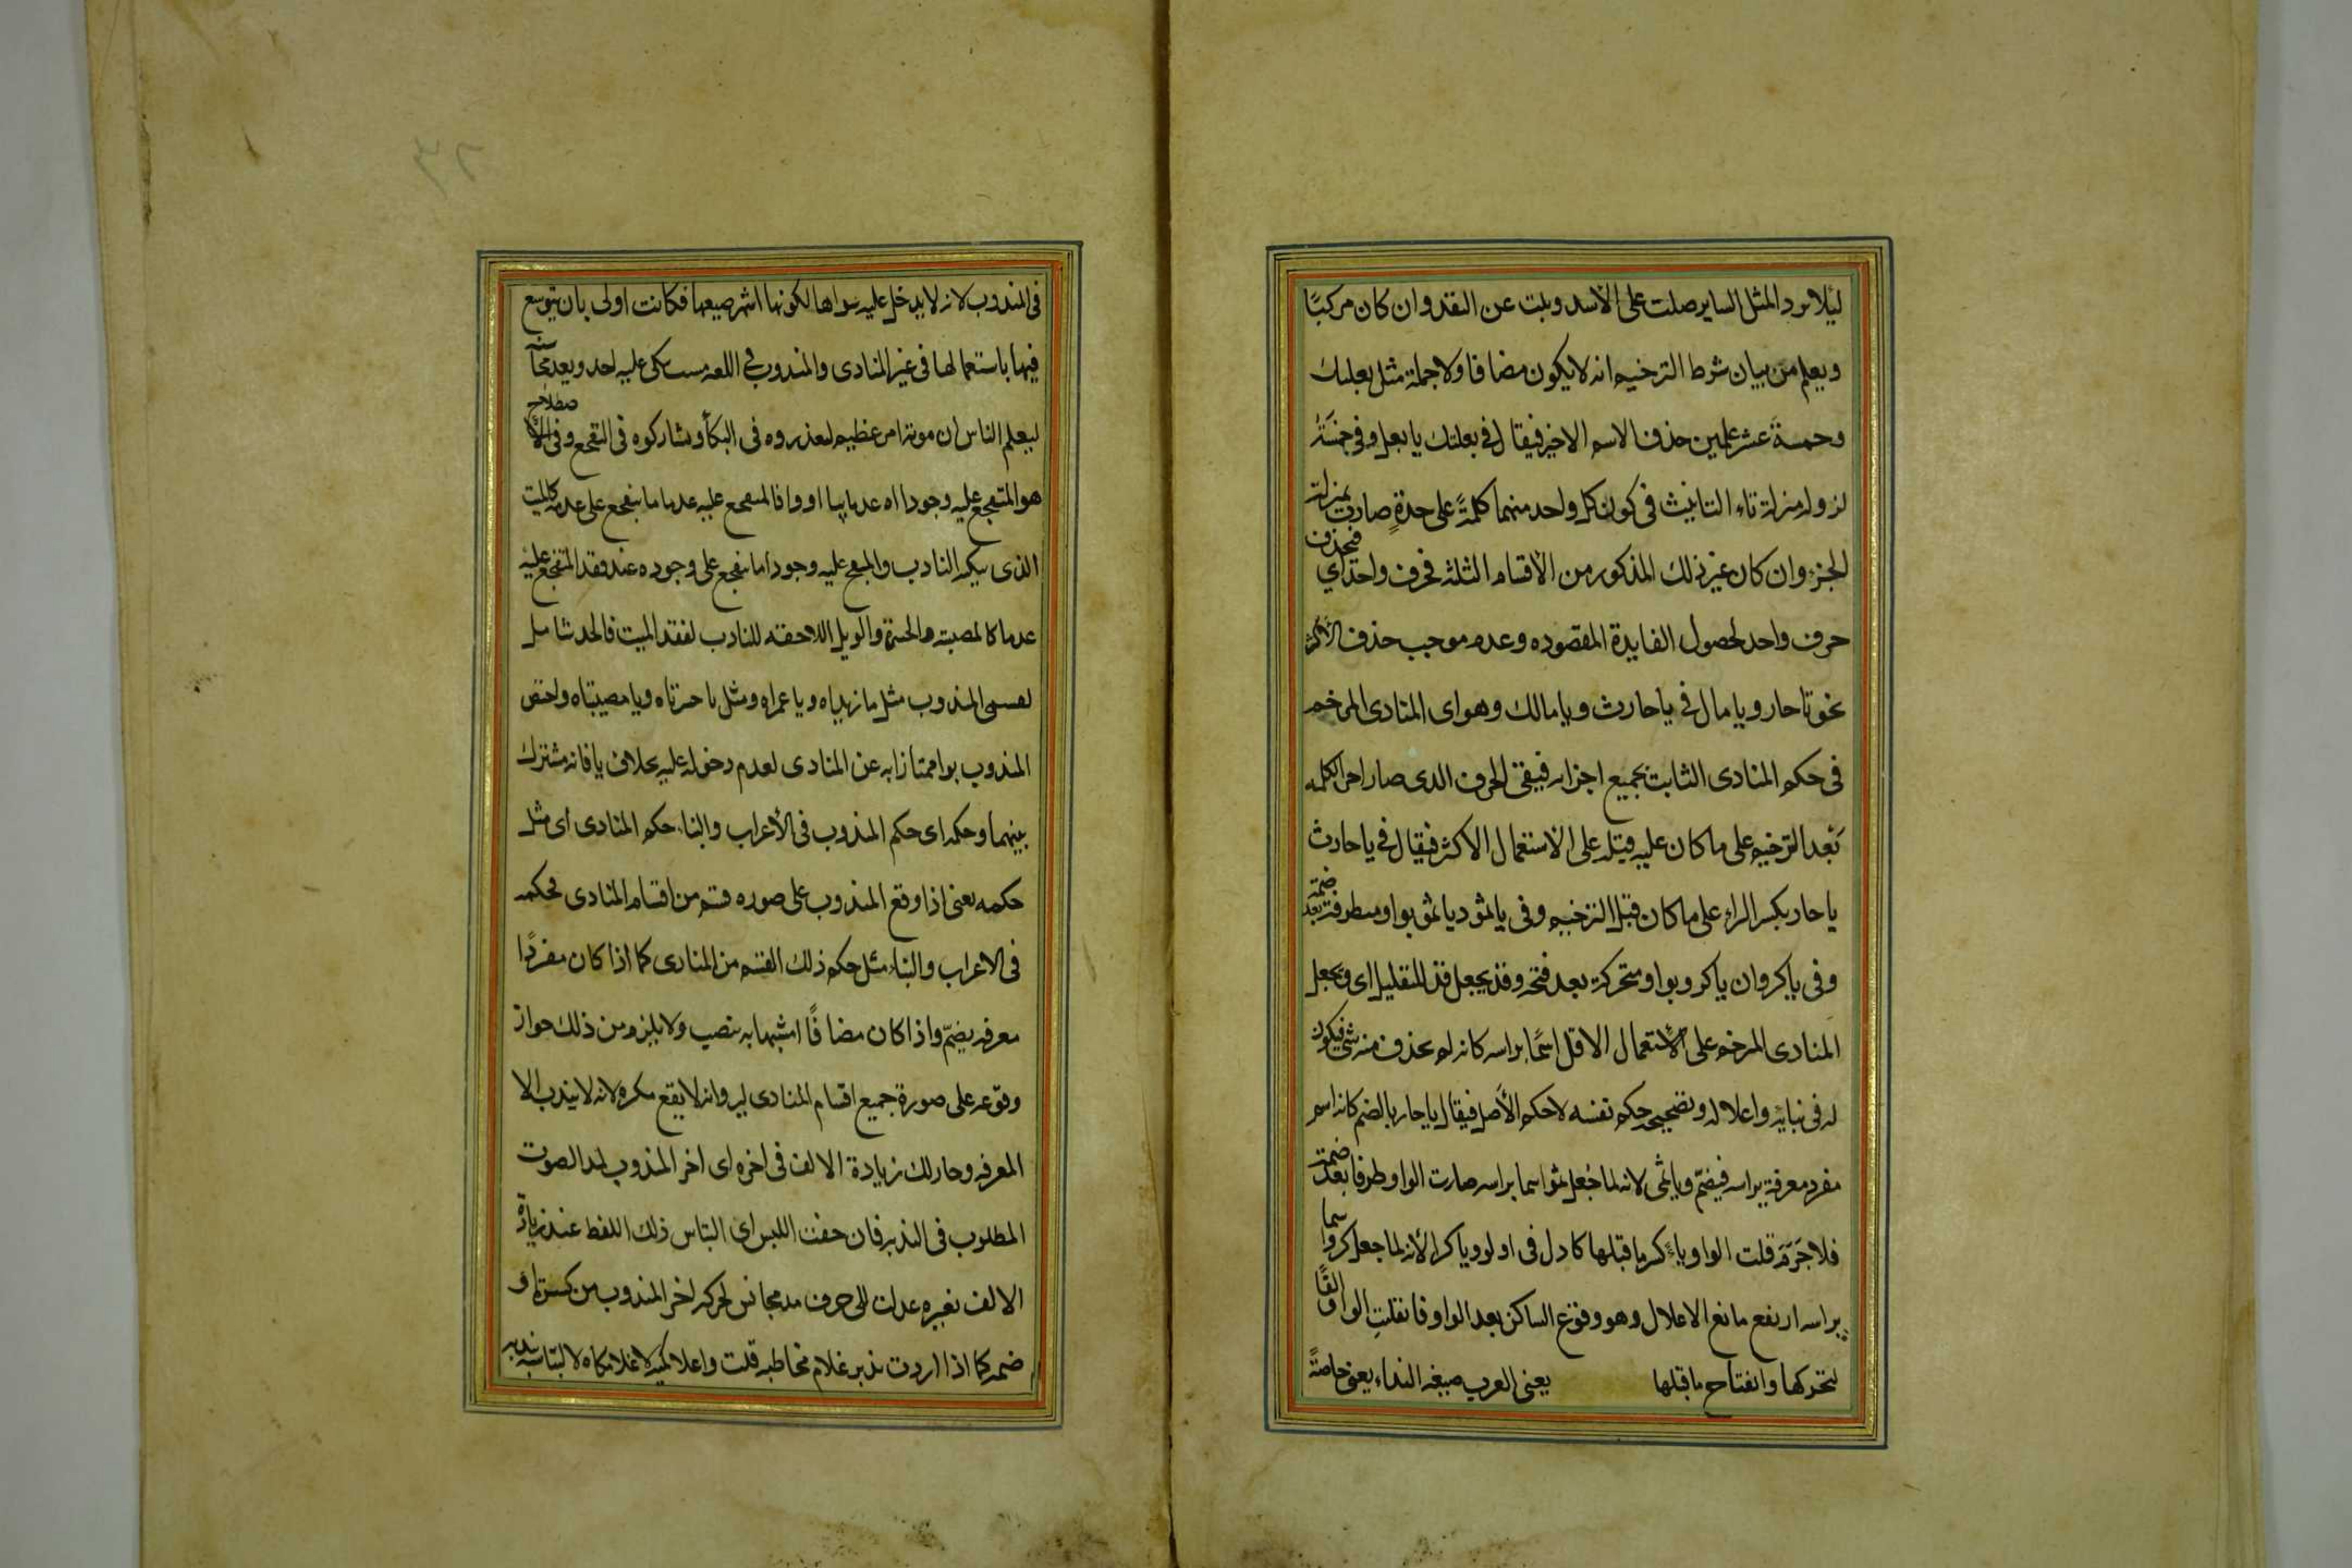 ليلا يرد المثل الساير صلت على الأسد وبلت عن النقد وان كان مركبًا
ويعلم من بيان شرط الترخيم انه لا يكون مضافا ولا جملة مثل بعلبك
وخمسة عشر علمين حذف الاسم الاخير فيقال في بعلبك يا بعل وفي خمسة
لنزوله منزلة تاء التانيث في كون كل واحد منهما كلمةً على حدةٍ صارت بمنزلة
الجزء وان كان غير ذلك المذكور من الأقسام الثلثة فحرف واحد اي فيحذف
حرف واحد لحصول الفايدة المقصوده وعدم موجب حذف الأكثر
نحو يا حار ويا مال في يا حارث ويا مالك وهو اى المنادى المرخم
فى حكم المنادى الثابت بجميع اجزايه فيبقى الحرف الدى صار اخر الكلمه
بَعْد الترخيم على ما كان عليه قبله على الاستعمال الاكثر فيقال في يا حارث
يا حار بكسر الراء على ما كان قبل الترخيم وفى يا ثمود يا ثمو بواو متطرفة بعد ضمة
وفى يا كروان يا كرو بواو متحركة بعد فتحة وقد يجعل قد للتقليل اى ويجعل
المنادى المرخم على الاستعمال الاقل اسمًا براسه كانه لم يحذف منه شى فيكون
له فى بنايه واعلاله وتصحيحه حكم نفسه لا حكم الأصل فيقال يا حار بالضم كانه اسم
مفرد معرفة براسه فيضمّ ويا ثمى لانه لما جُعل ثمو اسما براسه صارت الواو طرفا بعد ضمة
فلا جَرَمَ قلبت الواو ياءً وكسر ما قبلها كادل فى ادلو ويا كرا لأنه لما جعل كرو اسما
براسه ارتفع مانع الاعلال وهو وقوع الساكن بعد الواو فانقلبت الواو الفًا
لتحركها وانفتاح ما قبلها يعنى العرب صيغه النداء يعنى خاصةً
فى المندوب لانه لا يدخل عليه سواها لكونها اشهر صيغها فكانت اولى بان يتوسع
فيها باستعمالها فى غير المنادى والمندوب في اللغه ميت يبكى عليه احد ويعد محاسنه
ليعلم الناس ان موته امر عظيم ليعذروه فى البكأ ويشاركوه فى التفجع وفى الاصطلاح
هو المتفجع عليه وجودا او عدما بيا او وا فالمتفجع عليه عدما ما يتفجع على عدمه كالميت
الذى يبكيه النادب والمتفجع عليه وجودا ما يتفجع على وجوده عند فقد المتفجع عليه
عدما كالمصيبه والحسرة والويل اللاحقه للنادب لفقد الميت فالحد شامل
لقسمى المندوب مثل يا زيداه ويا عمراه ومثل يا حسرتاه ويا مصيبتاه واختص
المندوب بوا ممتازا به عن المنادى لعدم دخوله عليه بخلاف يا فانه مشترك
بينهما وحكمه اى حكم المندوب فى الأعراب والبناء حكم المنادى اى مثل
حكمه يعنى اذا وقع المندوب على صوره قسم من اقسام المنادى فحكمه
فى الاعراب والبناء مثل حكم ذلك القسم من المنادى كما اذا كان مفردًا
معرفه يضمّ واذا كان مضافًا او مشبها به ينصب ولا يلزم من ذلك جواز
وقوعه على صورة جميع اقسام المنادى ليرد انه لا يقع نكره لانه لا يندب الا
المعرفه وجاز لك زيادة الالف فى اخره اى اخر المندوب لمد الصوت
المطلوب فى الندبه فان خفت اللبس اى التباس ذلك اللفظ عند زيادة
الالف بغيره عدلت الى حرف مد مجانس لحركه اخر المندوب من كسرة او
ضمه كما اذا اردت ندبه غلام مخاطبه قلت واغلامكيه لا غلامكاه لالتباسه بندبه